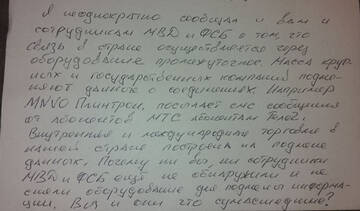 Я неоднократно сообщал и вам и
сотрудникам МВД и ФСБ о том, что
связь в стране осуществляется через
оборудование промежуточное. Масса круп-
нейших и государственных компаний подме-
няют данные о соединениях. Например
MNVO Плинтрон, посылает смс сообщения
от абонентов МТС абонентам Теле2.
Внутренняя и международная торговля в
нашей стране построена на подмене
данных. Почему ни вы, ни сотрудники
МВД и ФСБ ещё не обнаружили и не
сняли оборудование для подмены информа-
ции. Вы и они что сумасшедшие?